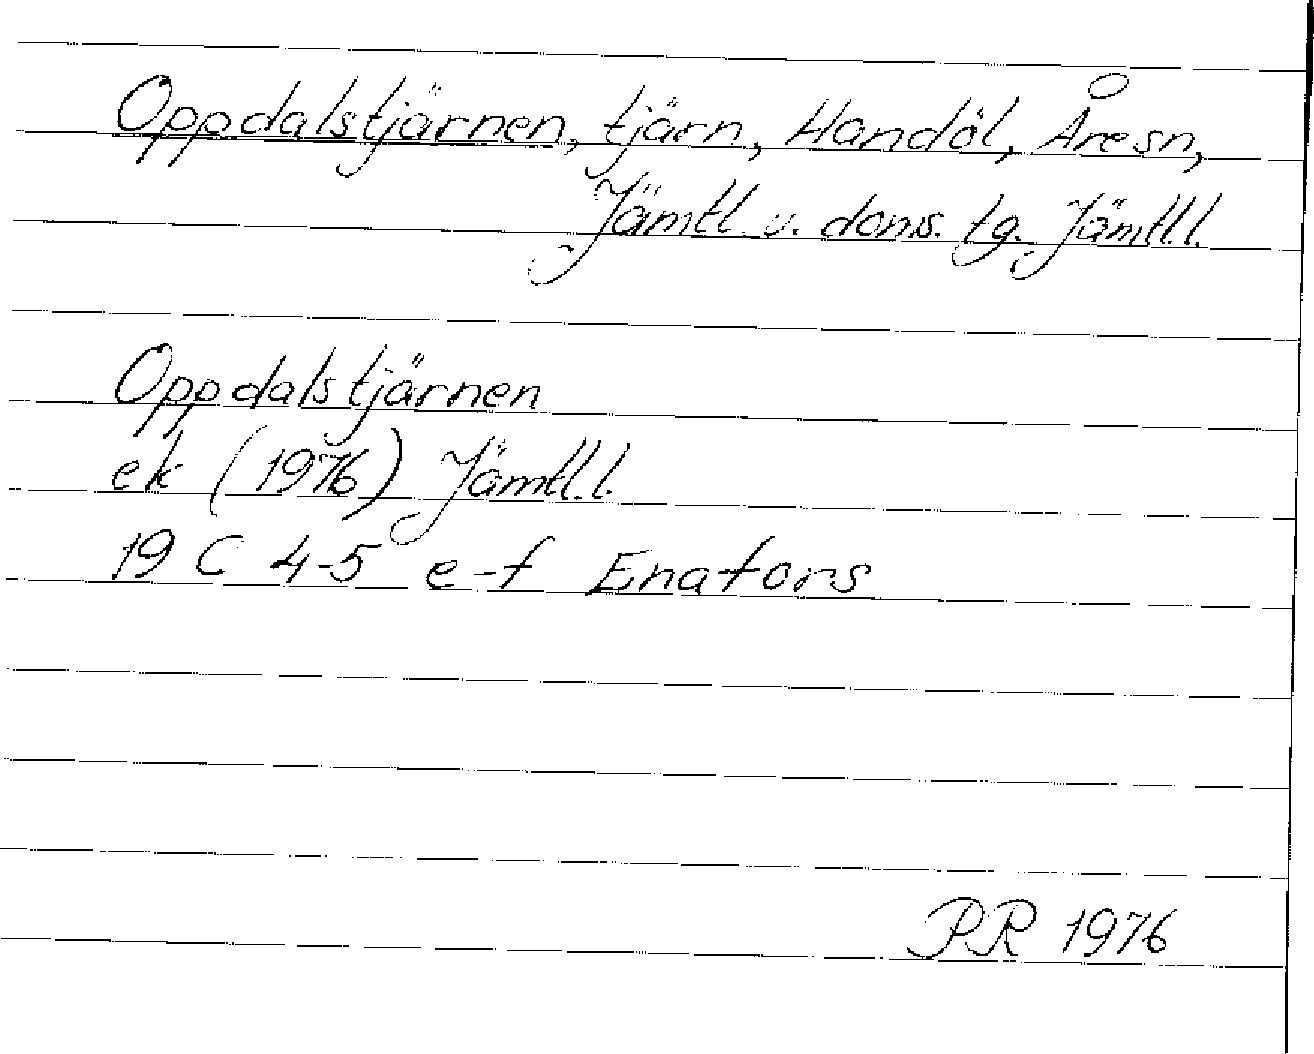 Oppdalstjärnen, tjärn, Handöl, Åre sn,
Jämtl. v. doms. tg. Jämtl. l.
Oppdalstjärnen
ek (1976) Jämtl. l.
19 C 4-5 e-f Enafors
PR 1976